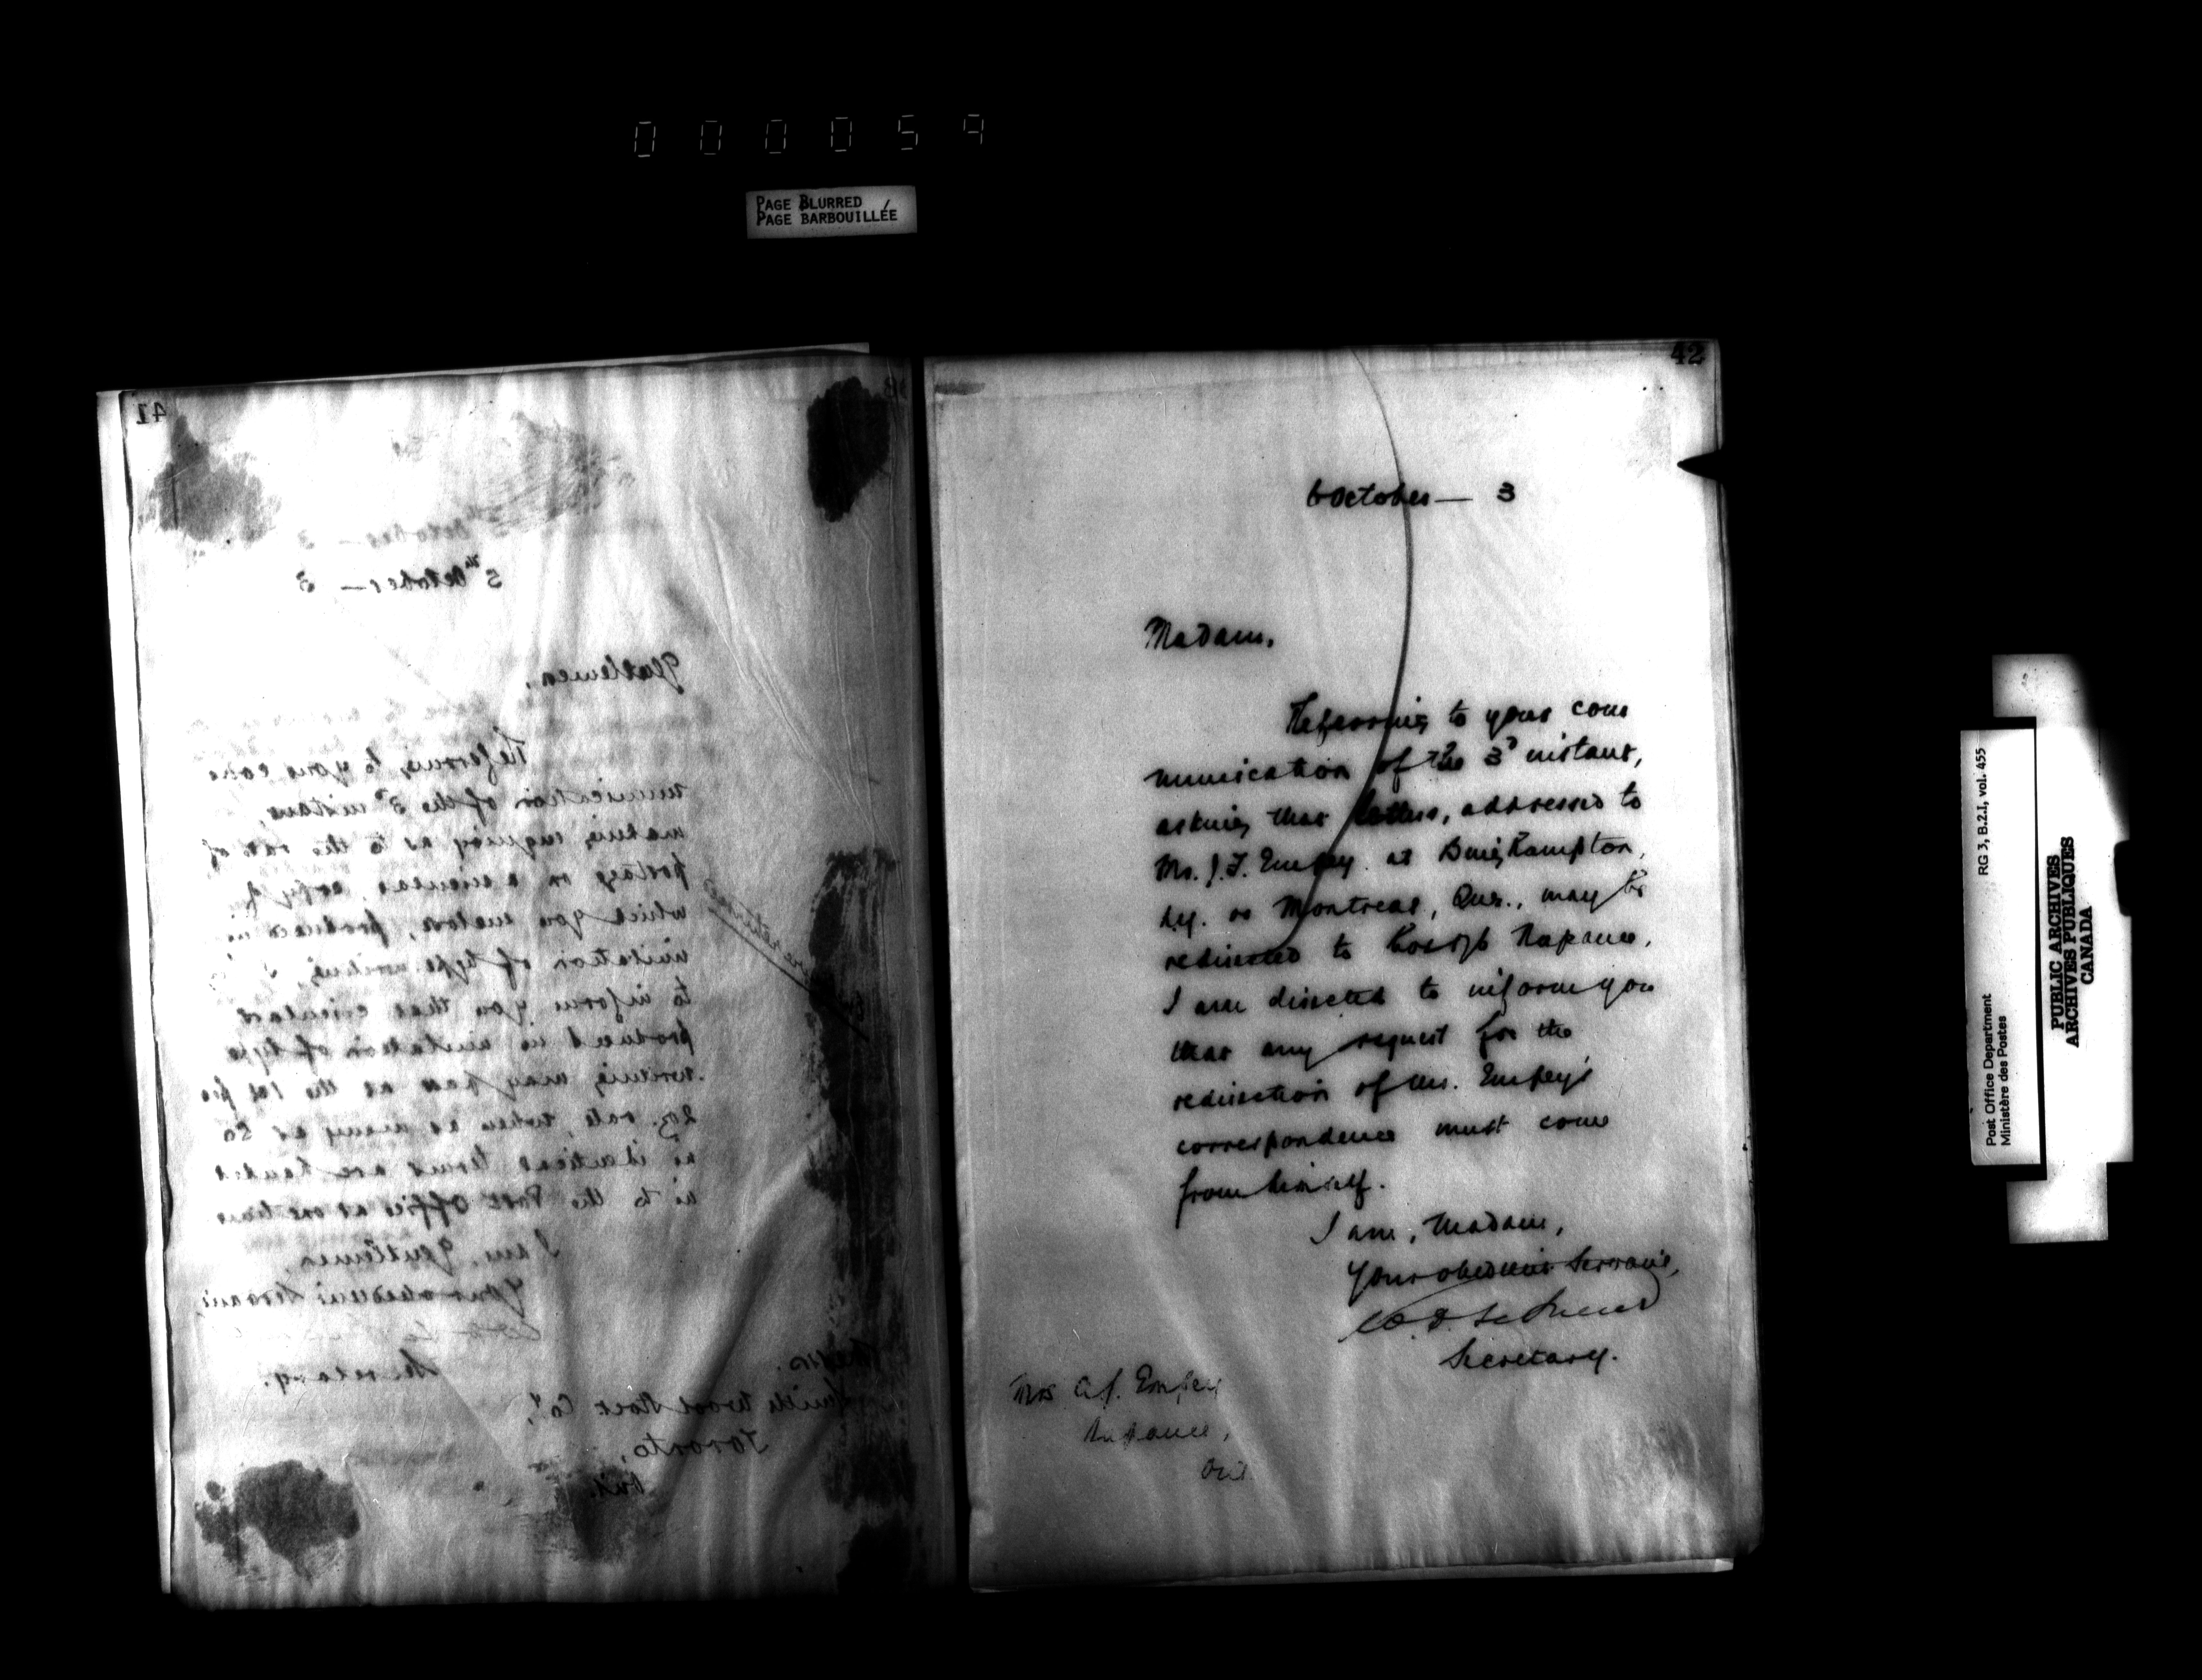 000059
PAGE BLURRED
PAGE BARBOUILLÉE
41
5th October — 3
Gentlemen,
Referring to your com
munication of the 3d instant,
making enquiry as to the rate of
postage on a circular, copy of
which you enclose, produced in
imitation of type writing, I
to inform you that circulars
produced in imitation of type
writing may pass at the 1ct per
2oz. rate, when as many as 50
in identical terms are handed
in to the Post Office at one time
I am, Gentlemen,
Your obedient Servant,
Secretary.
Messrs.
Smith Wool Stock Coy,
Toronto,
Ont.
42
6 October — 3
Madam,
Referring to your com
munication of the 3d instant,
asking that letters, addressed to
Mr. J. F. Empey at Binghampton,
N.Y. or Montreal, Que., may be
redirected to Napanee,
I am directed to inform you
that any request for the
redirection of Mr. Empey's
correspondence must come
from himself.
I am, Madam,
Your obedient Servant,
Secretary.
Mrs A. J. Empey
Napanee,
Ont
RG 3, B.2.I, vol. 455
Post Office Department
Ministère des Postes
PUBLIC ARCHIVES
ARCHIVES PUBLIQUES
CANADA